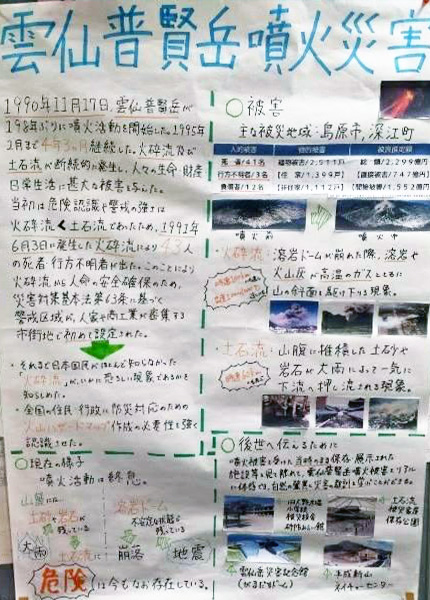 雲仙普賢岳噴火災害
1990年11月17日、雲仙普賢岳が
198年ぶりに噴火活動を開始した。1995年
2月まで4年3ヵ月継続した。火砕流及び
土石流が断続的に発生し、人々の生命・財産
日常生活に甚大な被害を与えた。
当初は危険認識や警戒の強さは
火砕流く土石流であったため、1991年
6月3日に発生した火砕流により43人
の死者・行方不明者が出た。このことにより
火砕流から人命の安全確保のため、
災害対策基本法第63条に基づく
警戒区域が、人家や商工業が密集する
市街地で初めて設定された。
・それまで日本国民がほとんど知らなかった
火砕流が、いかに恐ろしい現象であるかを
知らしめた。
・全国の住民・行政に防災対応のための
火山ハザードマップ作成の必要性を強く
認識させた。
○現在の様子
噴火活動は終息。
山麓には
土砂や岩石が
残っている
大雨
土石流に
溶岩ドームが
不安定な状態で
残っている
崩落
地震
危険は今もなお存在している。
○被害
主な被災地域：島原市、深江町
人的被害 物的被害 被害推定額
死者/41名 建物被害/2,511戸 総額/2,299億円
行方不明者/3名 (住家/1,399戸) (直接被害/747億円)
負傷者/12名 (非住家/1,112戸) (間接被害/1,552億円)
噴火前
噴火中
・火砕流：溶岩ドームが崩れた際、溶岩や
火山灰が高温のガスとともに
山の斜面を駆け下りる現象。
・土石流：山腹に堆積した土砂や
岩石が大雨によって一気に
下流へ押し流される現象。
○後世へ伝えるために
噴火被害を受けた当時のまま保存・展示された
施設等を見て眺めて、雲仙普賢岳噴火被害をリアル
に体感でき、自然の驚異と災害の教訓を学ぶことができる。
旧大野木場
小学校
被災校舎
砂防みらい館
土石流
被災家屋
保存公園
雲仙岳災害記念館
(がまだすドーム)
平成新山
ネイチャーセンター